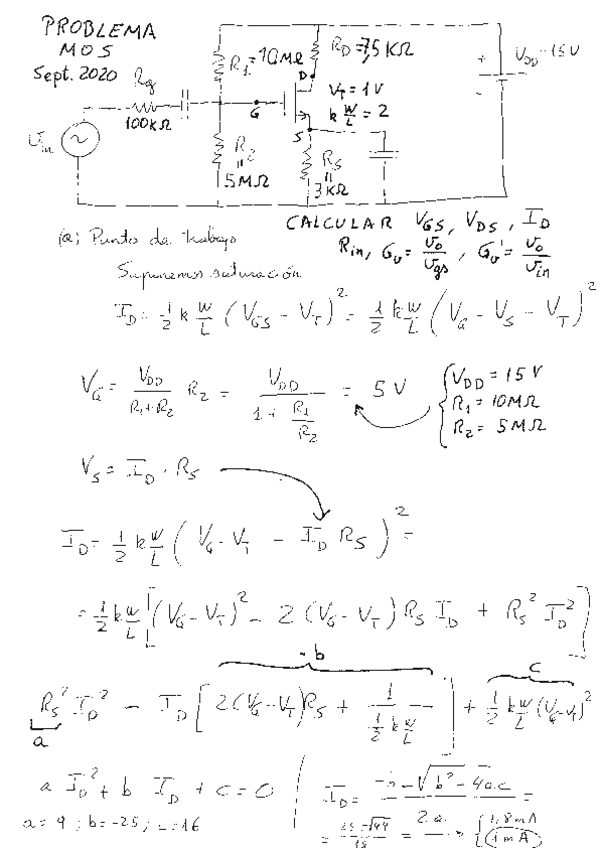 PROBLEMA
MOS
Sept. 2020
R1=10MΩ
RD=7,5KΩ
VDD=15V
Rg
100KΩ
VT=1V
k W/L = 2
D
G
S
Vin
R2
=
5MΩ
RS
=
3KΩ
+
-
CALCULAR VGS, VDS, ID
Rin, Gv = vo/vgs, Gv' = vo/vin
(a) Punto de trabajo
Suponemos saturación
ID = 1/2 k W/L (VGS - VT)^2 = 1/2 k W/L (VG - VS - VT)^2
VG = VDD/(R1+R2) R2 = VDD/(1 + R1/R2) = 5 V
{ VDD = 15 V
R1 = 10MΩ
R2 = 5MΩ
VS = ID · RS
ID = 1/2 k W/L (VG - VT - ID RS)^2 =
= 1/2 k W/L [(VG - VT)^2 - 2 (VG - VT) RS ID + RS^2 ID^2]
- b
c
RS^2 ID^2 - ID [2(VG-VT)RS + 1/(1/2 k W/L)] + 1/2 k W/L (VG-VT)^2
a
a ID^2 + b ID + c = 0
a = 9 ; b = -25 ; c = 16
ID = (-b - √(b^2 - 4a.c))/2.a =
= { 1,8 mA
1 mA